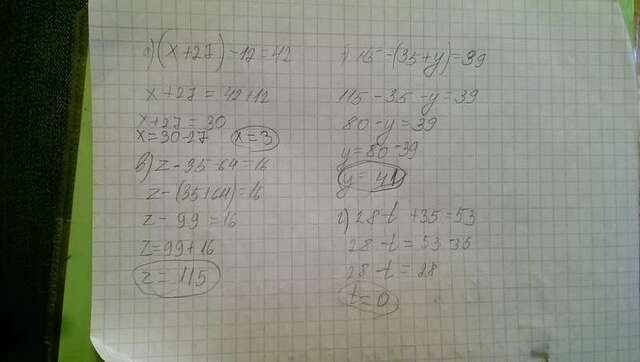 а) (x+27)-12=42
x+27=42+12
x+27=30
x=30-27 x=3
в) z-35-64=16
z-(35+64)=16
z-99=16
z=99+16
z=115
б) 115-(35+y)=39
115-35-y=39
80-y=39
y=80-39
y=41
г) 28-t+35=53
28-t=53-35
28-t=28
t=0